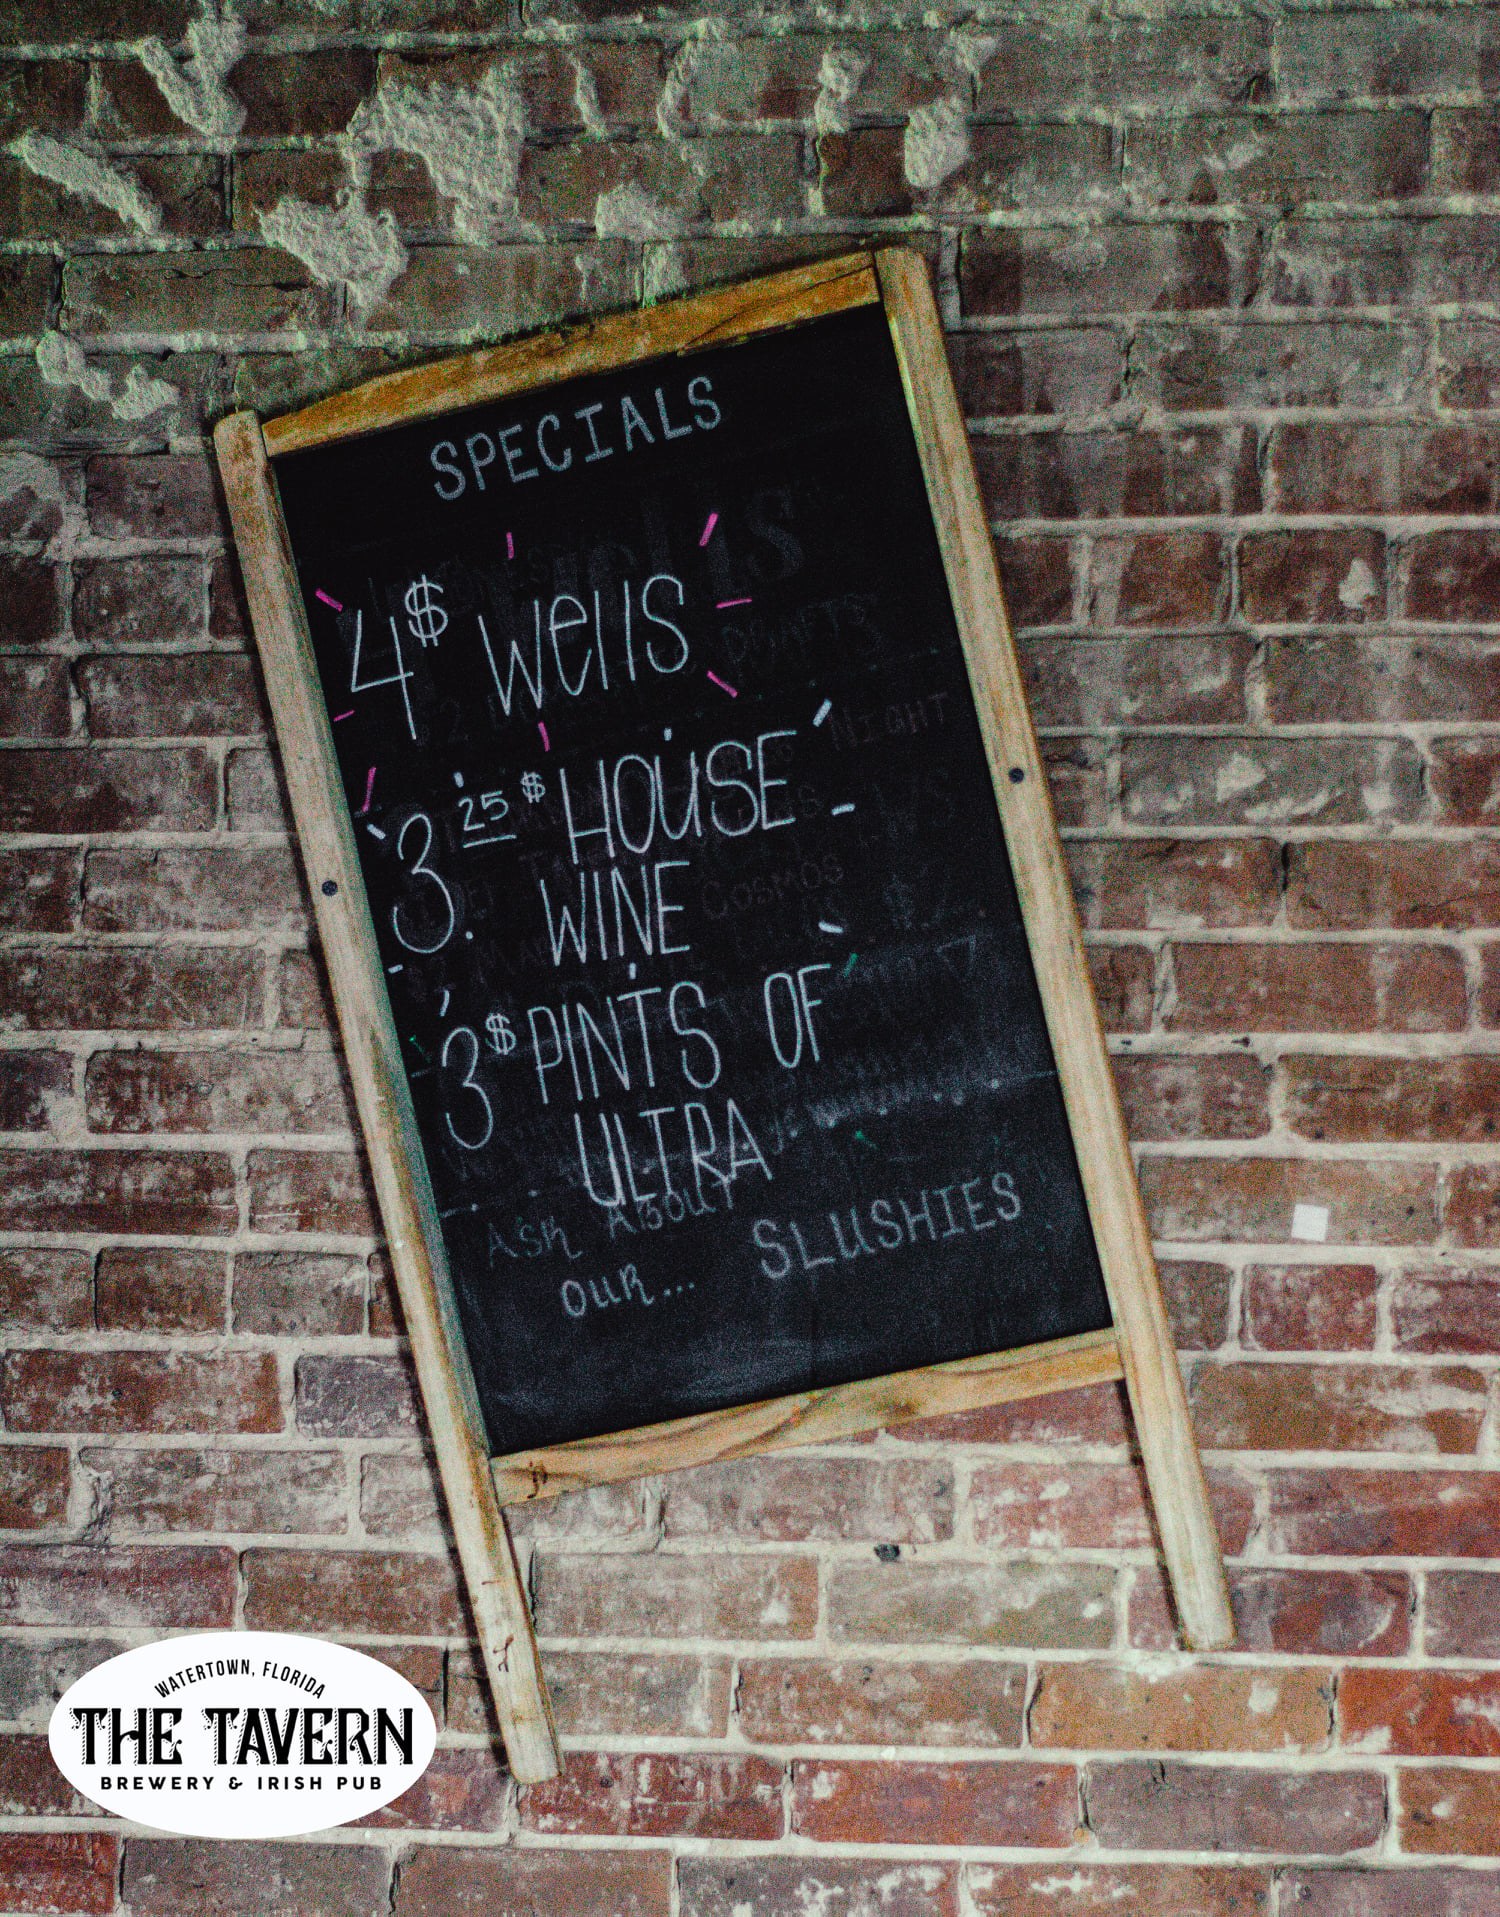 SPECIALS
4$ Wells
3.25$ HOUSE
WINE
3$ PINTS OF
ULTRA
ASK ABOUT
OUR... SLUSHIES
NIGHT
COSMOS
WATERTOWN, FLORIDA
THE TAVERN
BREWERY & IRISH PUB